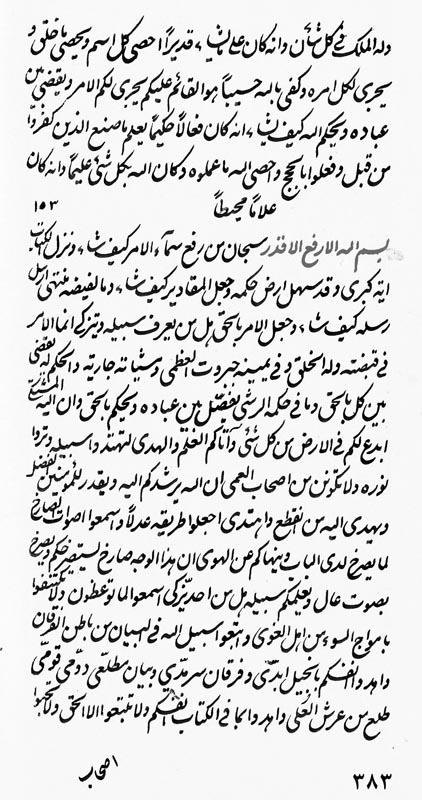 وله الملك في كل شأن وانه كان على ما يشاء قديراً احصى كل اسم ويحصى ما خلق و
يجرى لكل امره وكفى بالله حسيباً هو القائم عليكم يجرى لكم الامر ويقضى بين
عباده ويحكم الله كيف يشاء انه كان فعالاً حكيماً يعلم ما صنع الذين كفروا
من قبل وفعلوا بالحجج واحصى الله ما عملوه وكان الله بكل شئ عليماً وانه كان
علاماً محيطاً
١٥٣
بسم الله الارفع الاقدر سبحان من رفع سماء الامر كيف شاء ونزل الكتاب
اية كبرى وقد سهل ارض حكمه وجعل المقادير كيف شاء وما لفيضه منتهى ارسل
رسله كيف شاء وجعل الامر بالحق هل من يعرف سبيله ويتزكى انما الامر
في قبضته وله الخلق وفي يمينه جبروت العظمى ومشياته جارية والحكم له يقضى
بين كل بالحق وما في حكمه الرشى يفصل بين عباده ويحكم بالحق وان اليه المشتكى
ابدع لكم في الارض من كل شئ وآتاكم العلم والهدى لتهتدوا سبيله وتروا
نوره ولا تكونن من اصحاب العمى ان الله يرشدكم اليه ويقدر للمؤمنين الفضل
ويهدى اليه من انقطع واهتدى اجعلوا طريقه عدلاً واسمعوا اصوات الصارخ
لما يصرخ لدى الباب وينهاكم عن الهوى ان هذا الوجه صارخ ليستصرخكم ويصرخ
بصوت عال ويعلمكم سبيله هل من احد يتزكى اسمعوا لما توعظون ولا تكتنفوا
بامواج السوء من اهل الغوى واتبعوا سبيل الله في البيان من باطن الفرقان
واهدوا انفسكم بانجيل ابدى وفرقان سرمدى وبيان مطلعى دومى قومى
طلع من عرش العلى واهدوا بما في الكتاب انفسكم ولا تتبعوا الا الحق ولا تحبوا
اصحاب
٣٨٣